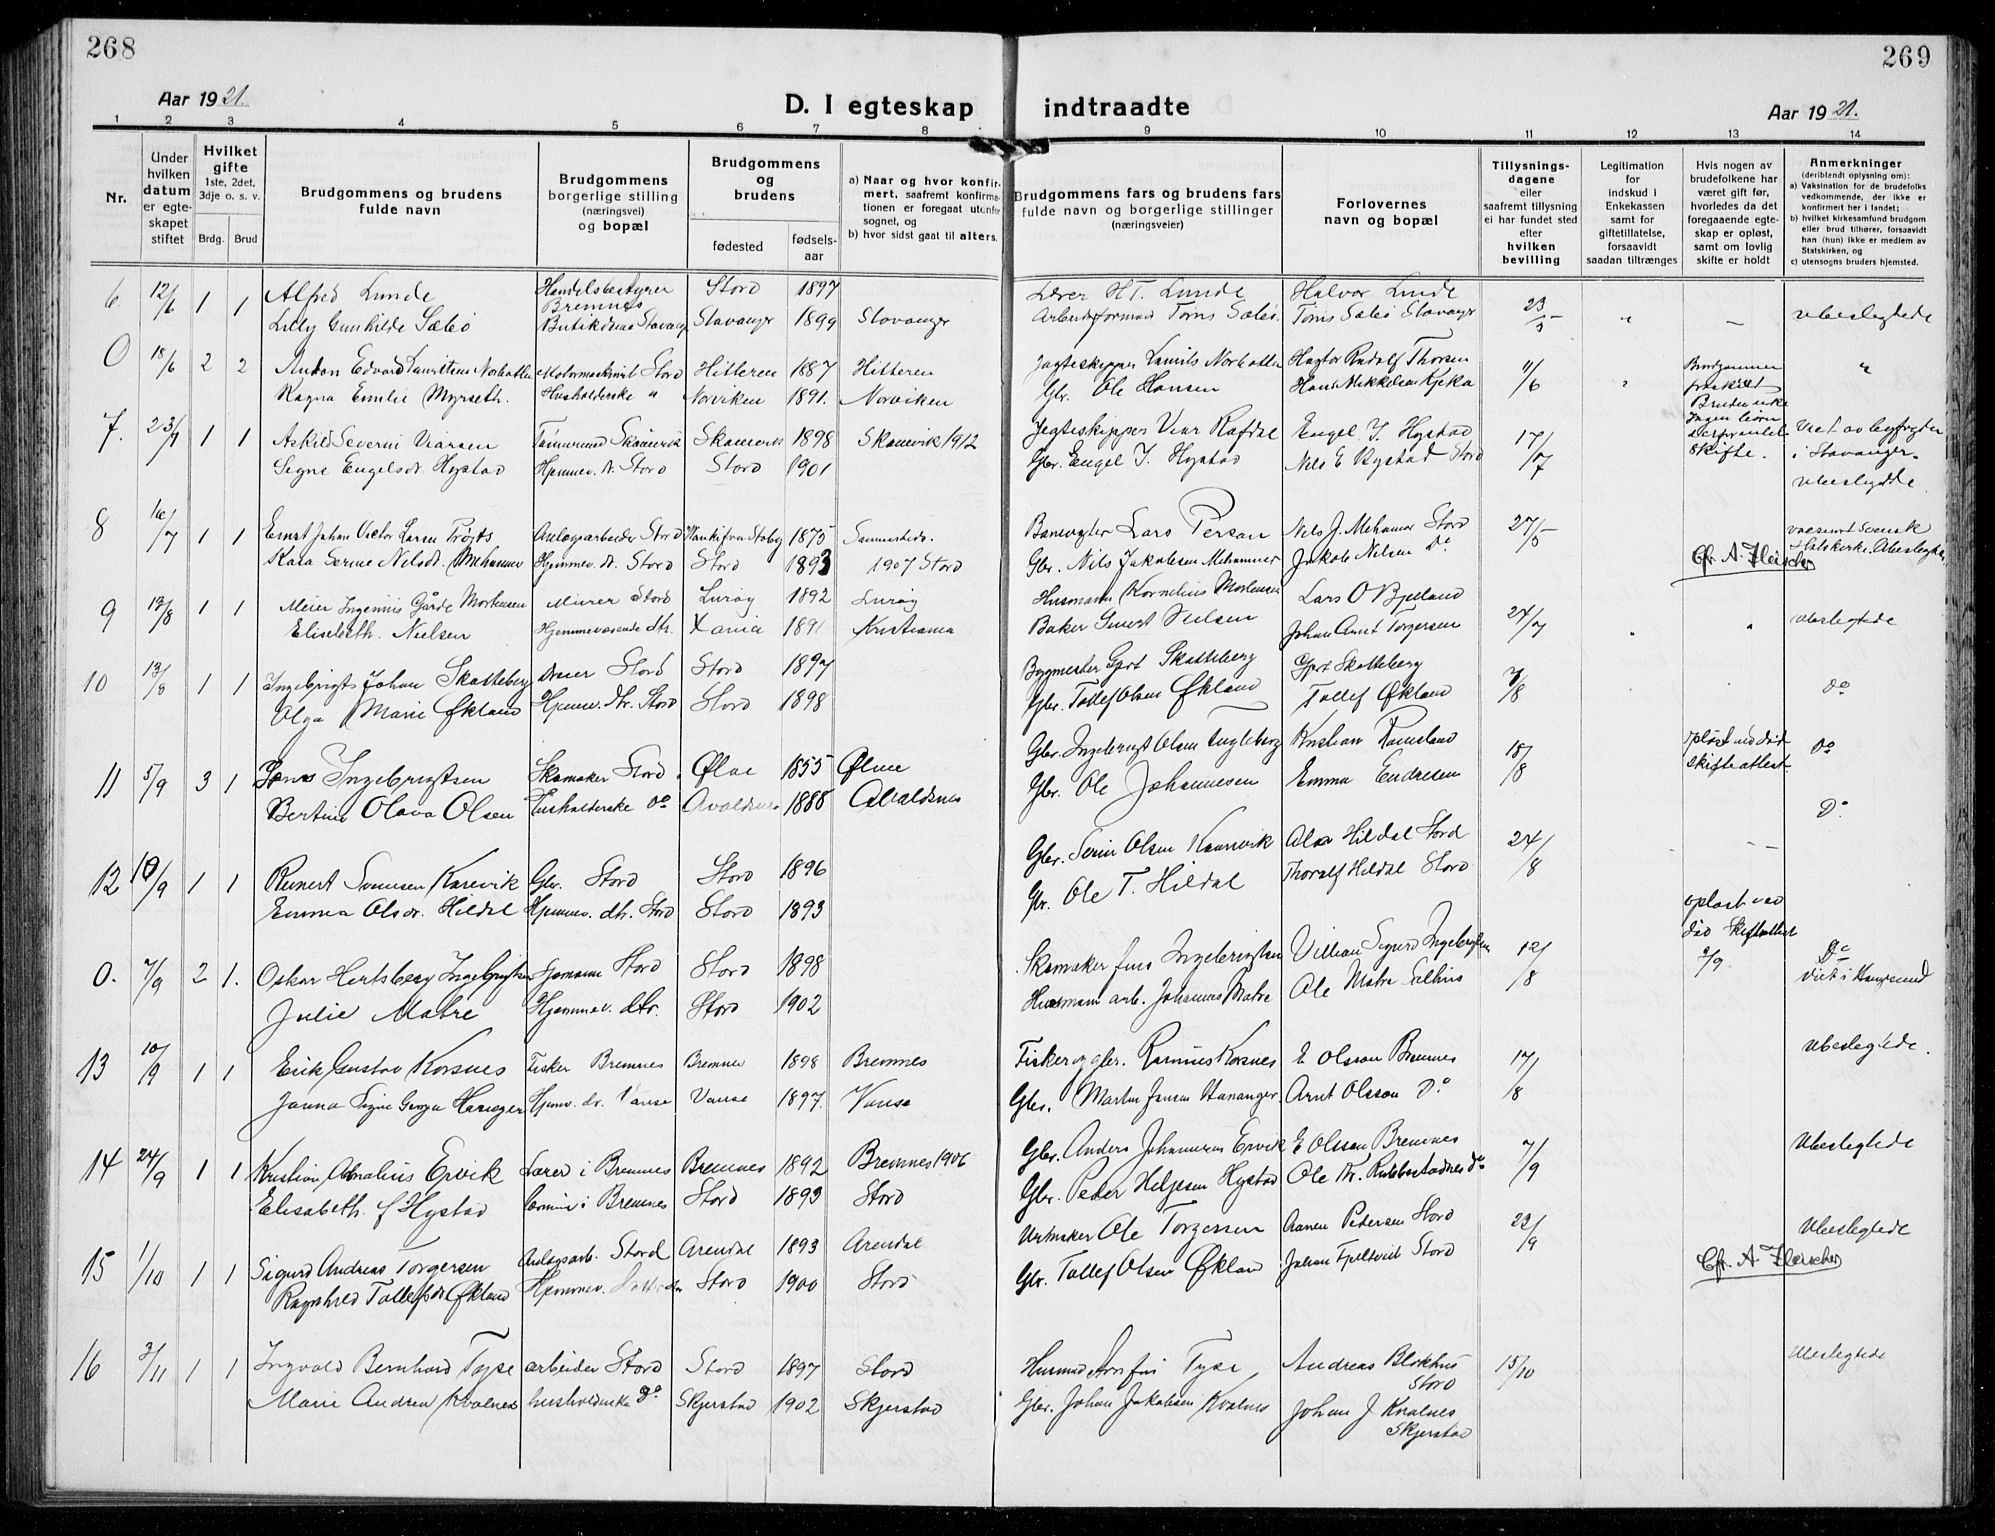 268
269
Aar 1921.
D. I egteskap indtraadte
Aar 1921.
1 2 3 4 5 6 7 8 9 10 11 12 13 14
Nr.
Under hvilken datum er egteskapet stiftet
Hvilket gifte 1ste, 2det, 3dje o. s. v.
Brdg. Brud
Brudgommens og brudens fulde navn
Brudgommens borgerlige stilling (næringsvei) og bopæl
Brudgommens og brudens
fødested
fødselsaar
a) Naar og hvor konfirmert, saafremt konfirmationen er foregaat utenfor sognet, og
b) hvor sidst gaat til alters.
Brudgommens fars og brudens fars fulde navn og borgerlige stillinger (næringsveier)
Forlovernes navn og bopæl
Tillysningsdagene eller saafremt tillysning ei har fundet sted efter hvilken bevilling
Legitimation for indskud i Enkekassen samt for giftetillatelse, forsaavidt saadan tiltrænges
Hvis nogen av brudefolkene har været gift før, hvorledes da det foregaaende egteskap er opløst, samt om lovlig skifte er holdt
Anmerkninger (deriblandt oplysning om):
a) Vaksination for de brudefolks vedkommende, der ikke er konfirmert her i landet;
b) hvilket kirkesamfund brudgom eller brud tilhører, forsaavidt han (hun) ikke er medlem av Statskirken, og
c) utensogns bruders hjemsted.
6. 12/6 1 1 Alfred Lunde Handelsbestyrer Bremnes Stord 1897 Lærer H.T. Lunde Halvor Lunde 23/5 " — Ubeslegtede
Lilly Gunhilde Sæbö Butikdame Stavanger Stavanger 1899 Stavanger Arbeidsformand Tönis Sæbö. Tönis Sæbö Stavanger
0 18/6 2 2 Anton Edvard Lauritsen Norbotten Motormaskinist Stord Hitteren 1887 Hitteren Jagteskipper Laurits Norbotten Hagtor Rudolf Thorsen 11/6 " Brudgommen fraskilt "
Ragna Emilie Myrseth. Husholderske " Norviken 1891. Norviken Gbr. Ole Hansen Hans Mikkelsen Kjeka Bruden enke Ingen leiv. skifte.
7. 23/7 1 1 Askild Severin Viarsen Tömmermand Skaanevik Skaanevik 1898 Skaanevik 1912 Jegteskipper Viar Rafdal Engel J. Hystad 17/7 Viet av byfogden i Stavanger.
Signe Engelsdr. Hystad Hjemmev. dr. Stord Stord 1901 Gbr. Engel J. Hystad Nils E Hystad Stord Ubeslegtede
8 16/7 1 1 Ernst Johan Victor Larsen Anlægsarbeider Stord 1875 Sammesteds. Banevogter Lars Person Nils J. Mehammer Stord 27/5 Svensk Statskirke. Ubeslegtede
Kaia Serine Nilsdr. Mehammer Hjemmev. dr. Stord Stord 1893 1907 Stord Gbr. Nils Jakobsen Mehammer Jakob Nilsen Do Cfr. A. Fleischer
9 13/8 1 1 Meier Ingenius Gårde Mortensen Murer Stord Luröy 1892 Luröy Husmann Kornelius Mortensen Lars O Bjelland 24/7 " " Ubeslegtede
Elisabeth. Nielsen Hjemmeværende dtr. Xania 1891 Kristiania Baker Nielsen Johan Arnt Torgersen
10 13/8 1 1 Ingebrigt Johan Skatteberg Dreier Stord Stord 1897 Bygmester Gjert Skatteberg Gjert Skatteberg 7/8 " Do
Olga Marie Økland Hjemmev. dtr. Stord Stord 1898 Gbr. Tollef Olsen Økland Tollef Økland
11 5/9 3 1 Jens Ingebrigtsen Skomaker Stord Ølve 1855 Ølve Gbr. Ingebrigt Olsen Kristian Ramsland 18/8 opløst ved død skifteattest Do
Bertine Olava Olsen Husholderske do Avaldsnes 1888 Avaldsnes Gbr. Ole Johannesen Emma Endresen
12 10/9 1 1 Reinert Kaarevik Gbr. Stord Stord 1896 Gbr. Olsen Kaarevik Hildal Stord 24/8 - - Do
Emma Olsdr. Hildal Hjemmev. dtr. Stord Stord 1893 Gbr. Ole T. Hildal Thoralf Hildal Stord
0. 7/9 2 1. Oskar Hertsberg Ingebrigtsen Sjømann Stord Stord 1898 Skomaker Jens Ingebrigtsen Villian Sigurd Ingebrigtsen 12/8 opløst ved død Skifteattest 2/9. Do Viet i Haugesund
Julie Matre Hjemmev. dtr. Stord 1902 Husmann arb. Johannes Matre Ole Matre
13 10/9 1 1 Erik Gustav Korsnes Fisker Bremnes Bremnes 1898 Bremnes Fisker og gbr. Rasmus Korsnes E Olsson Bremnes 17/8 Ubeslegtede.
Janna Signe Hananger Hjemv. dr. Vanse Vanse 1897. Vanse Gbr. Martin Jensen Hananger Arnt Olsson Do
14 24/9 1 1 Kristian Ervik Lærer i Bremnes Bremnes 1892 Bremnes 1906 Gbr. Anders Johannesen Ervik E Olsson Bremnes 7/9 Ubeslegtede
Elisabeth Hystad i Bremnes Stord 1893 Stord Gbr. Peder Helgesen Hystad Ole Kr. Rubbestadnes do
15 1/10 1 1 Sigurd Andreas Torgersen Anlægsarb. Stord Arendal 1893 Arendal Urmaker Ole Torgersen Aanen Petersen Stord 22/9 Ubeslegtede
Ragnhild Tollefsdr Økland Hjemmev. Stord 1900 Stord Gbr. Tollef Olsen Økland Johan Fjeltveit Stord Cfr. A Fleischer
16 3/11 1 1 Ingvald Bernhard Tyse arbeider Stord Stord 1897 Stord Husmand Tyse Andreas Blokhus Stord 15/10 Ubeslegtede
Marie Andrea Kvalnes husholderske Do Skjerstad 1902 Skjerstad Gbr. Johan Jakobsen Kvalnes Johan J Kvalnes Skjerstad